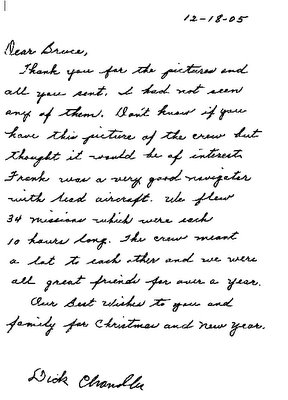 12-18-05
Dear Bruce,
Thank you for the pictures and
all you sent. I had not seen
any of them. Don't know if you
have this picture of the crew but
thought it would be of interest.
Frank was a very good navigator
with lead aircraft. We flew
34 missions which were each
10 hours long. The crew meant
a lot to each other and we were
all great friends for over a year.
Our Best Wishes to you and
family for Christmas and New Year.
Dick Chandler